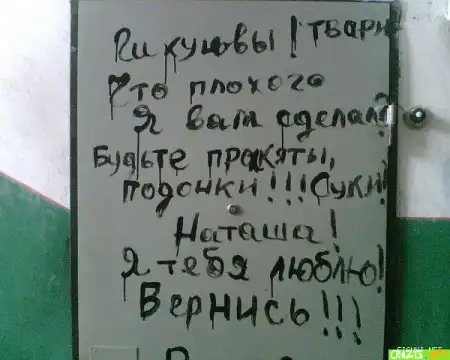 Ги хуювы! твари
Что плохого
Я вам сделал?
Будьте прокяты,
подонки!!! Суки!
Наташа!
Я тебя люблю!
Вернись!!!